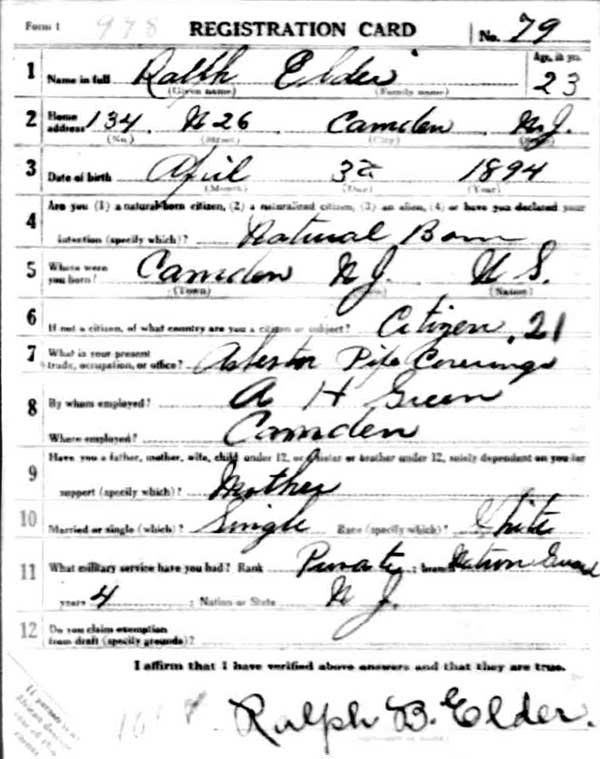 Form 1 978 REGISTRATION CARD No. 79
1 Name in full Ralph Elder Age, in yrs. 23
(Given name) (Family name)
2 Home address 134 N 26 Camden N.J.
(No.) (Street) (City) (State)
3 Date of birth April 3d 1894
(Month) (Day) (Year)
4 Are you (1) a natural-born citizen, (2) a naturalized citizen, (3) an alien, (4) or have you declared your
intention (specify which)? Natural Born
5 Where were you born? Camden N J. U S.
(Town) (Nation)
6 If not a citizen, of what country are you a citizen or subject? Citizen, 21
7 What is your present trade, occupation, or office? Asbestor Pipe Coverings
8 By whom employed? A H Green
Where employed? Camden
9 Have you a father, mother, wife, child under 12, or a sister or brother under 12, solely dependent on you for
support (specify which)? Mother
10 Married or single (which)? Single Race (specify which)? White
11 What military service have you had? Rank Private ; branch Nation Guard
years 4 ; Nation or State N J.
12 Do you claim exemption from draft (specify grounds)?
I affirm that I have verified above answers and that they are true.
Ralph B. Elder.